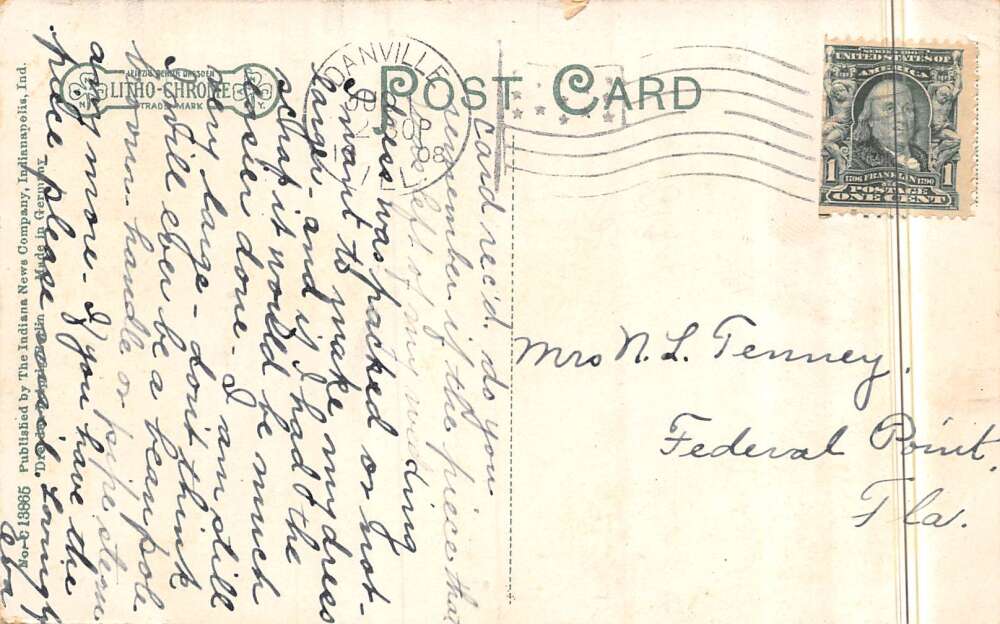 POST CARD
LEIPZIG BERLIN DRESDEN
LITHO-CHROME
TRADE MARK
N.Y.
DANVILLE
2
08
ILL
SERIES 1902
UNITED STATES OF
AMERICA
1706 FRANKLIN 1790
1 1
POSTAGE
ONE CENT
Mrs N. L. Tenney,
Federal Point,
Fla.
Card rec'd. do you
remember if the piece that
was left of my wedding
dress was packed or not-
I want to make my dress
larger- and if I had the
scrap it would be much
easier done- I am still
very large- don't think
I will ever be a bean pole
broom-handle or pipe stem
any more- If you have the
piece please send. Lovingly
Eva
No. C 13865 Published by The Indiana News Company, Indianapolis, Ind.
Made in Germany